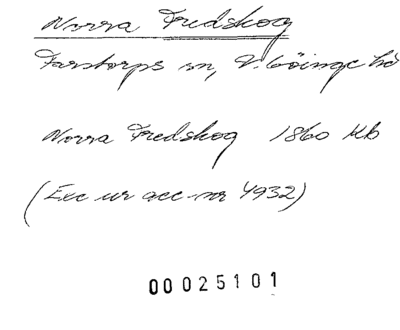 Norra Fredskog
Farstorps sn, V. Göinge hd
Norra Fredskog 1860 Kb
(Exc ur acc-nr 4932)
00025101